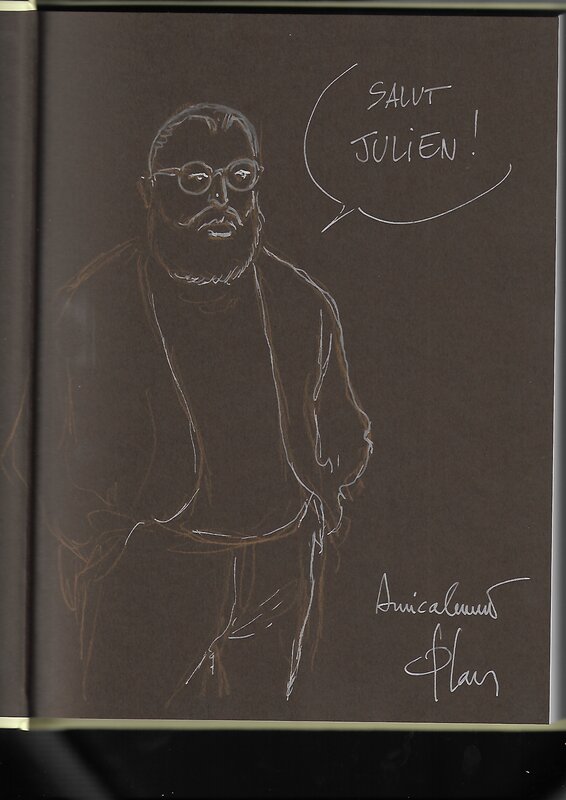 SALUT
JULIEN !
Amicalement